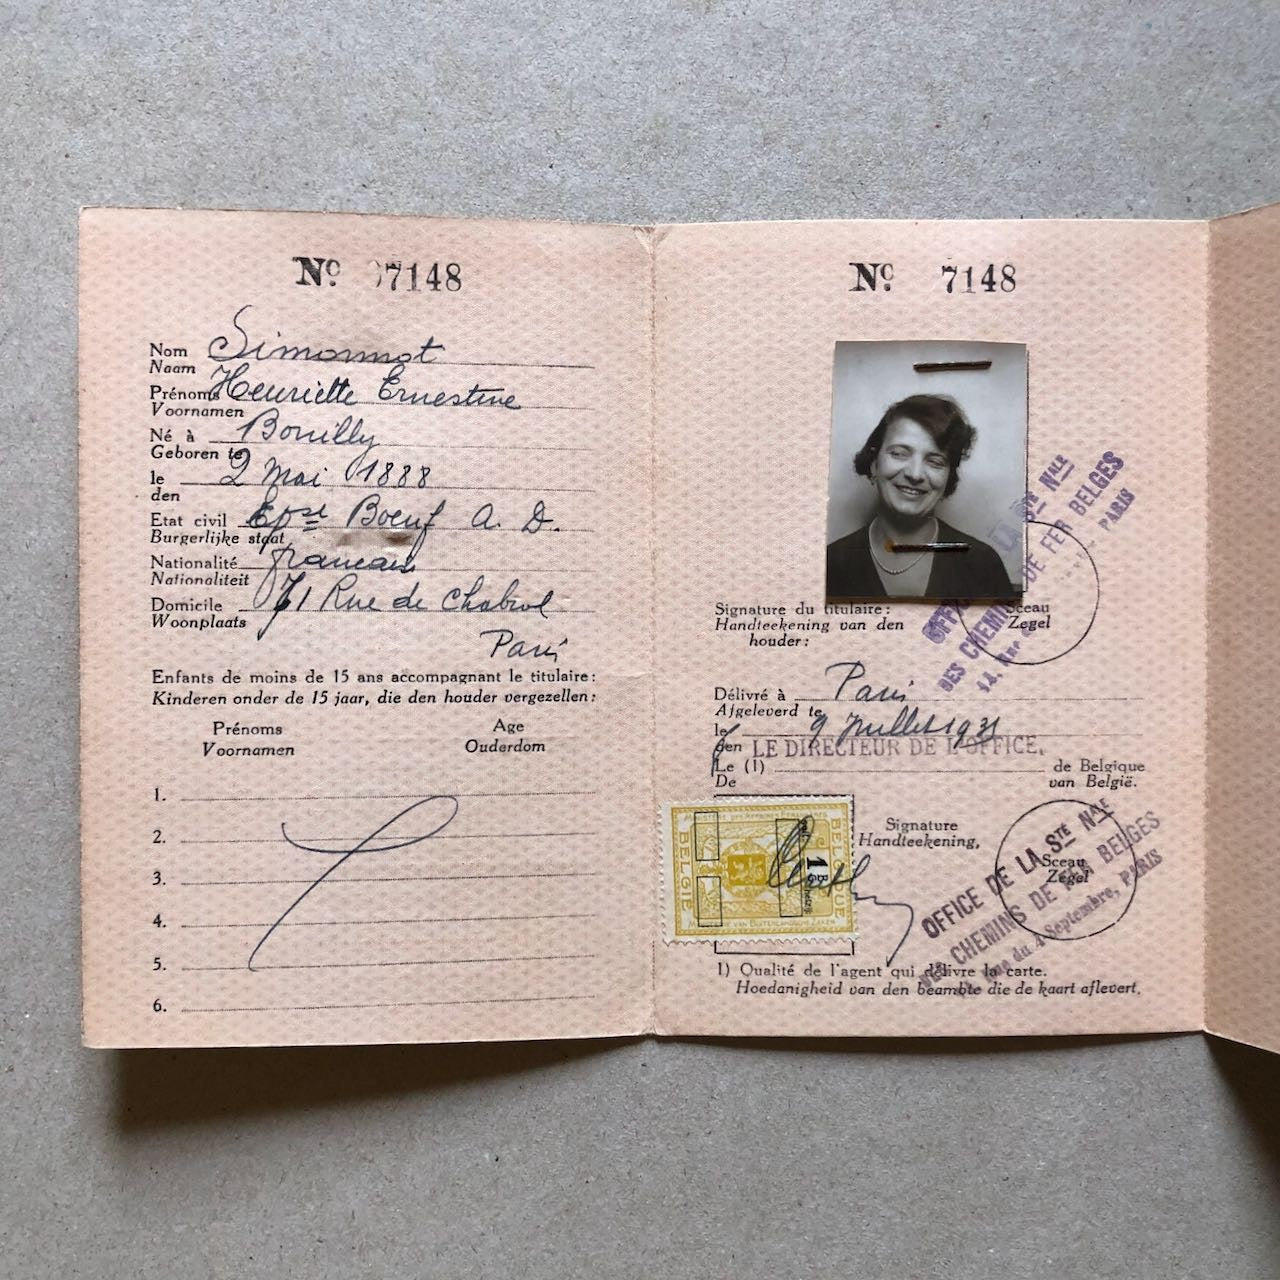 Nº 7148
Nom Simonnot
Naam
Prénoms Henriette Ernestine
Voornamen
Né à Bouilly
Geboren te
le 2 mai 1888
den
Etat civil Epse Boeuf A. D.
Burgerlijke staat
Nationalité française
Nationaliteit
Domicile 71 Rue de Chabrol
Woonplaats
Paris
Enfants de moins de 15 ans accompagnant le titulaire:
Kinderen onder de 15 jaar, die den houder vergezellen:
Prénoms Age
Voornamen Ouderdom
1.
2.
3.
4.
5.
6.
Nº 7148
OFFICE LA STÉ NALE
DES CHEMINS DE FER BELGES
14, Rue PARIS
Signature du titulaire:
Handteekening van den
houder:
Sceau
Zegel
Délivré à Paris
Afgeleverd te
le 9 Juillet 1931
den LE DIRECTEUR DE L'OFFICE.
Le (1) de Belgique
De van België.
MINISTÈRE DES AFFAIRES ÉTRANGÈRES
BELGIE
BELGIQUE
1
MINISTERIE VAN BUITENLANDSCHE ZAKEN
Signature
Handteekening,
Sceau
Zegel
OFFICE DE LA STÉ NALE
DES CHEMINS DE FER BELGES
Rue du 4 Septembre, PARIS
1) Qualité de l'agent qui délivre la carte.
Hoedanigheid van den beambte die de kaart aflevert.